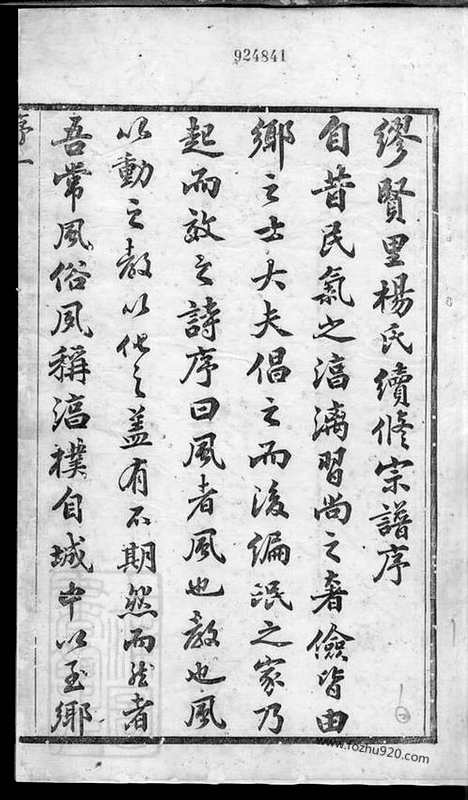 924841
繆賢里楊氏續修宗譜序
自昔民氣之湻漓習尚之奢儉皆由
鄉之士大夫倡之而後編氓之家乃
起而效之詩序曰風者風也教也風
以動之教以化之蓋有不期然而然者
吾常風俗夙稱湻樸自城中以至鄉
序一
www.fozhu920.com